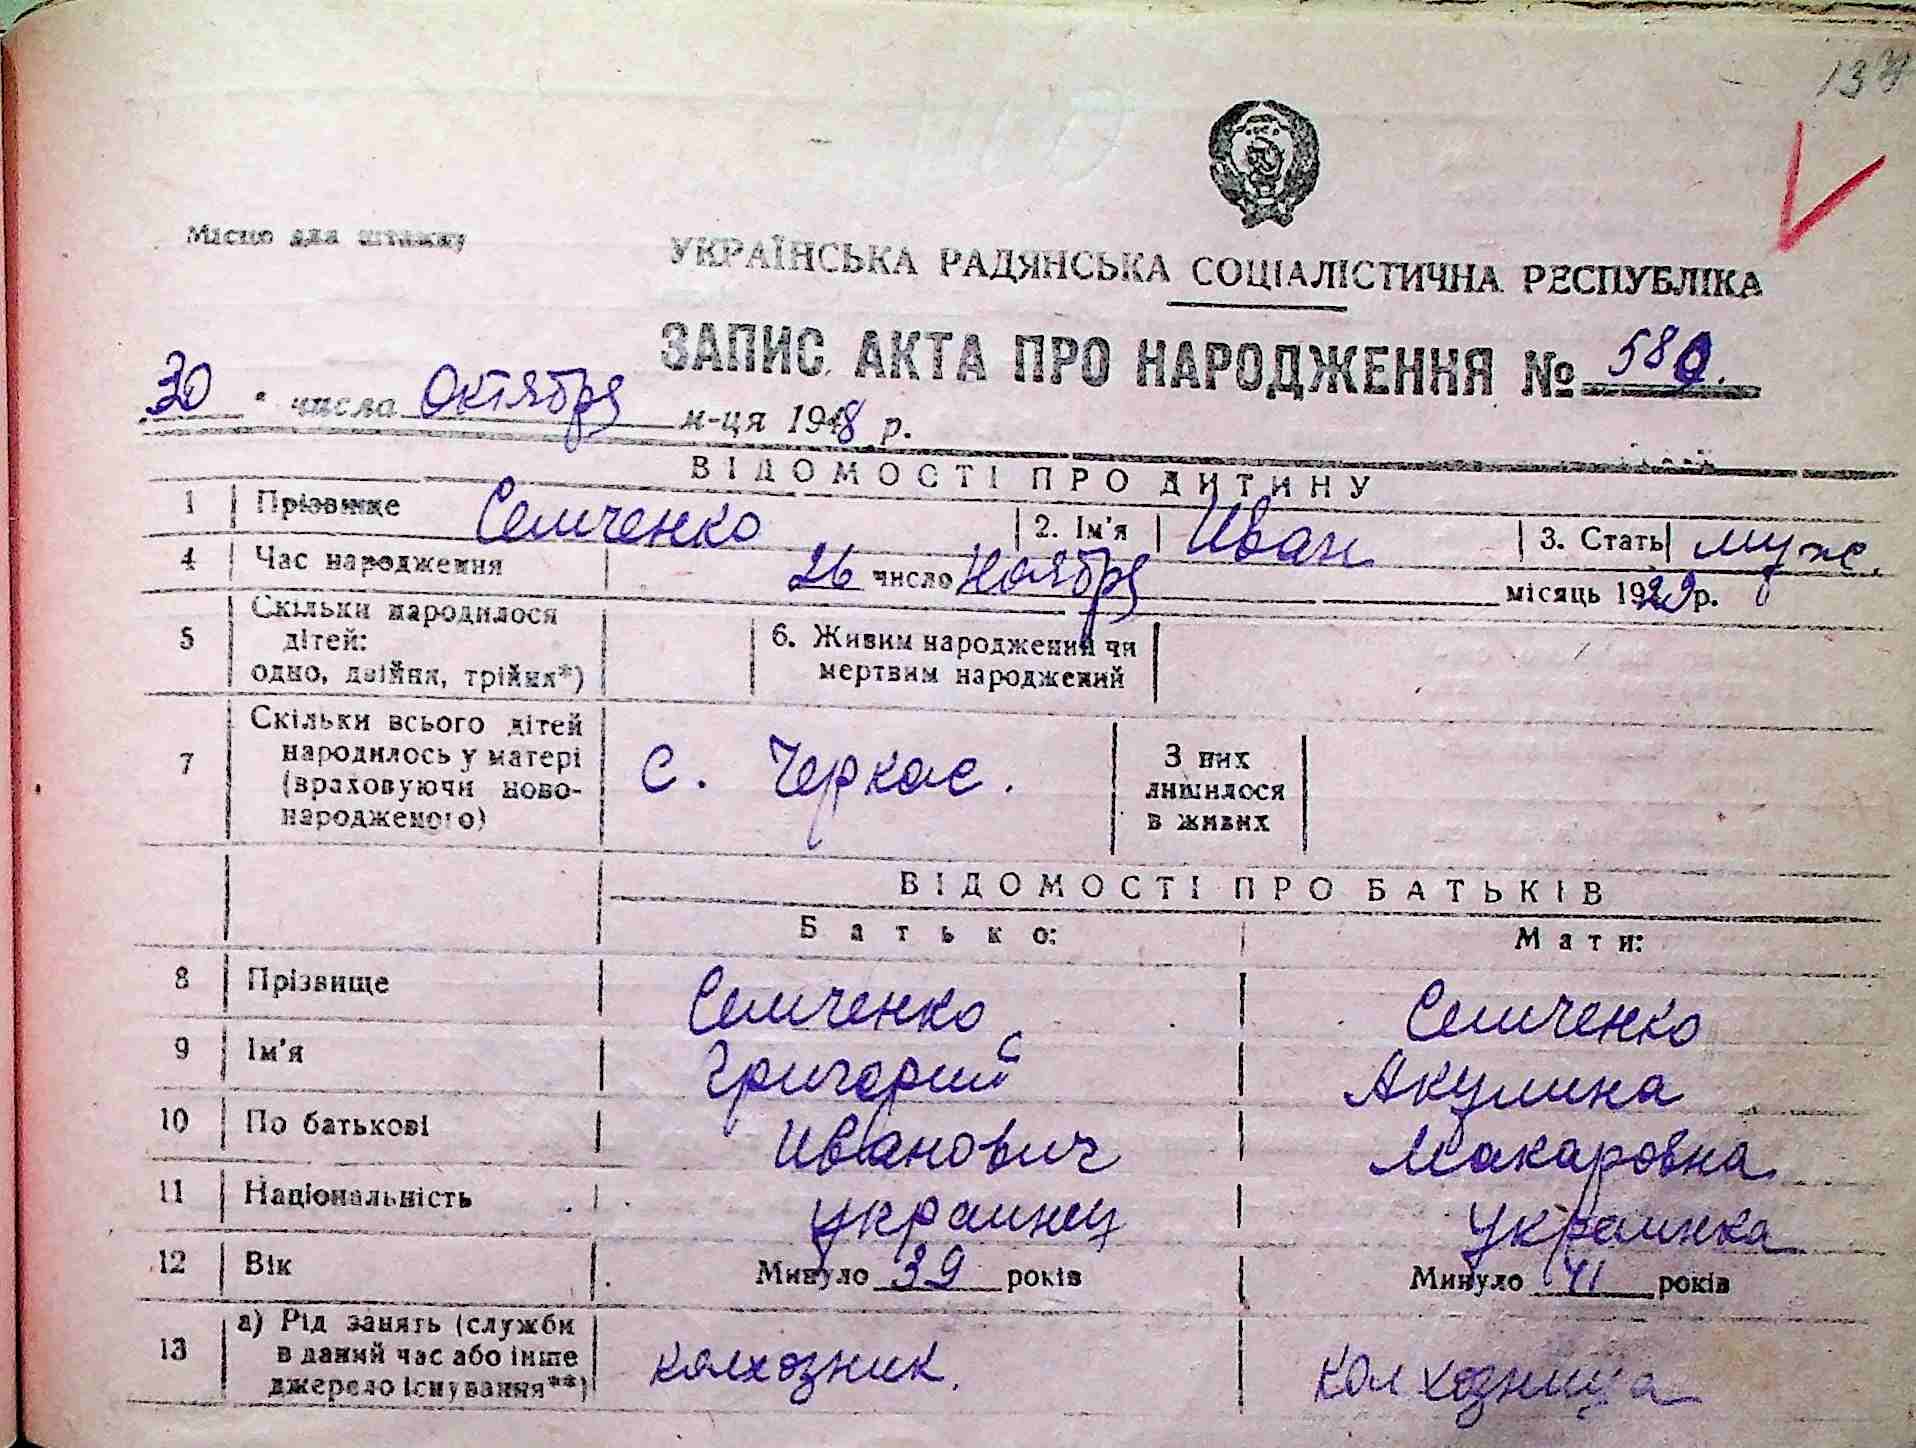 Місце для штампу
УКРАЇНСЬКА РАДЯНСЬКА СОЦІАЛІСТИЧНА РЕСПУБЛІКА
ЗАПИС АКТА ПРО НАРОДЖЕННЯ № 580.
30 числа Октября м-ця 1948 р.
ВІДОМОСТІ ПРО ДИТИНУ
1 Прізвище Семченко 2. Ім'я Иван 3. Стать муж.
4 Час народження 26 число Ноября місяць 1929 р.
5 Скільки народилося дітей: одно, двійня, трійня*) 6. Живим народжений чи мертвим народжений
7 Скільки всього дітей народилось у матері (враховуючи ново-народженого) с. Черкас. З них лишилося в живих
ВІДОМОСТІ ПРО БАТЬКІВ
Батько: Мати:
8 Прізвище Семченко Семченко
9 Ім'я Григорий Акулина
10 По батькові Иванович Макаровна
11 Національність украинец украинка
12 Вік Минуло 39 років Минуло 41 років
13 а) Рід занять (служби в даний час або інше джерело існування**) колхозник. колхозница